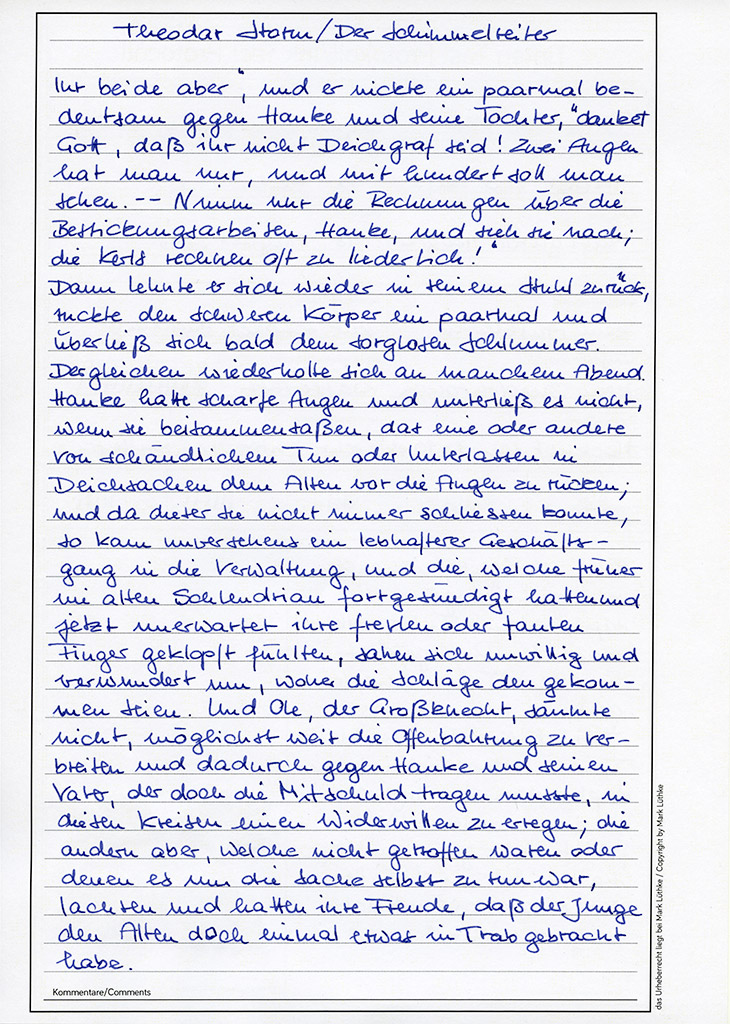 Theodor Storm / Der Schimmelreiter
Ihr beide aber", und er nickte ein paarmal be-
deutsam gegen Hauke und seine Tochter, "danket
Gott, daß ihr nicht Deichgraf seid! Zwei Augen
hat man nur, und mit hundert soll man
sehen. -- Nimm nur die Rechnungen über die
Bestickungsarbeiten, Hauke, und sieh sie nach;
die Kerls rechnen oft zu liederlich!"
Dann lehnte er sich wieder in seinem Stuhl zurück,
ruckte den schweren Körper ein paarmal und
überließ sich bald dem sorglosen Schlummer.
Dergleichen wiederholte sich an manchem Abend.
Hauke hatte scharfe Augen und unterließ es nicht,
wenn sie beisammensaßen, das eine oder andere
von schändlichem Tun oder Unterlassen in
Deichsachen dem Alten vor die Augen zu rücken;
und da dieser sie nicht immer schliessen konnte,
so kam unversehens ein lebhafterer Geschäfts-
gang in die Verwaltung, und die, welche früher
im alten Schlendrian fortgesündigt hatten und
jetzt unerwartet ihre frevlen oder faulen
Finger geklopft fühlten, sahen sich unwillig und
verwundert um, woher die Schläge den gekom-
men seien. Und Ole, der Großknecht, säumte
nicht, möglichst weit die Offenbahrung zu ver-
breiten und dadurch gegen Hauke und seinen
Vater, der doch die Mitschuld tragen musste, in
diesen Kreisen einen Widerwillen zu erregen; die
andern aber, welche nicht getroffen waren oder
denen es um die Sache selbst zu tun war,
lachten und hatten ihre Freude, daß der Junge
den Alten doch einmal etwas in Trab gebracht
habe.
Kommentare/Comments
das Urheberrecht liegt bei Mark Lüthke / Copyright by Mark Lüthke